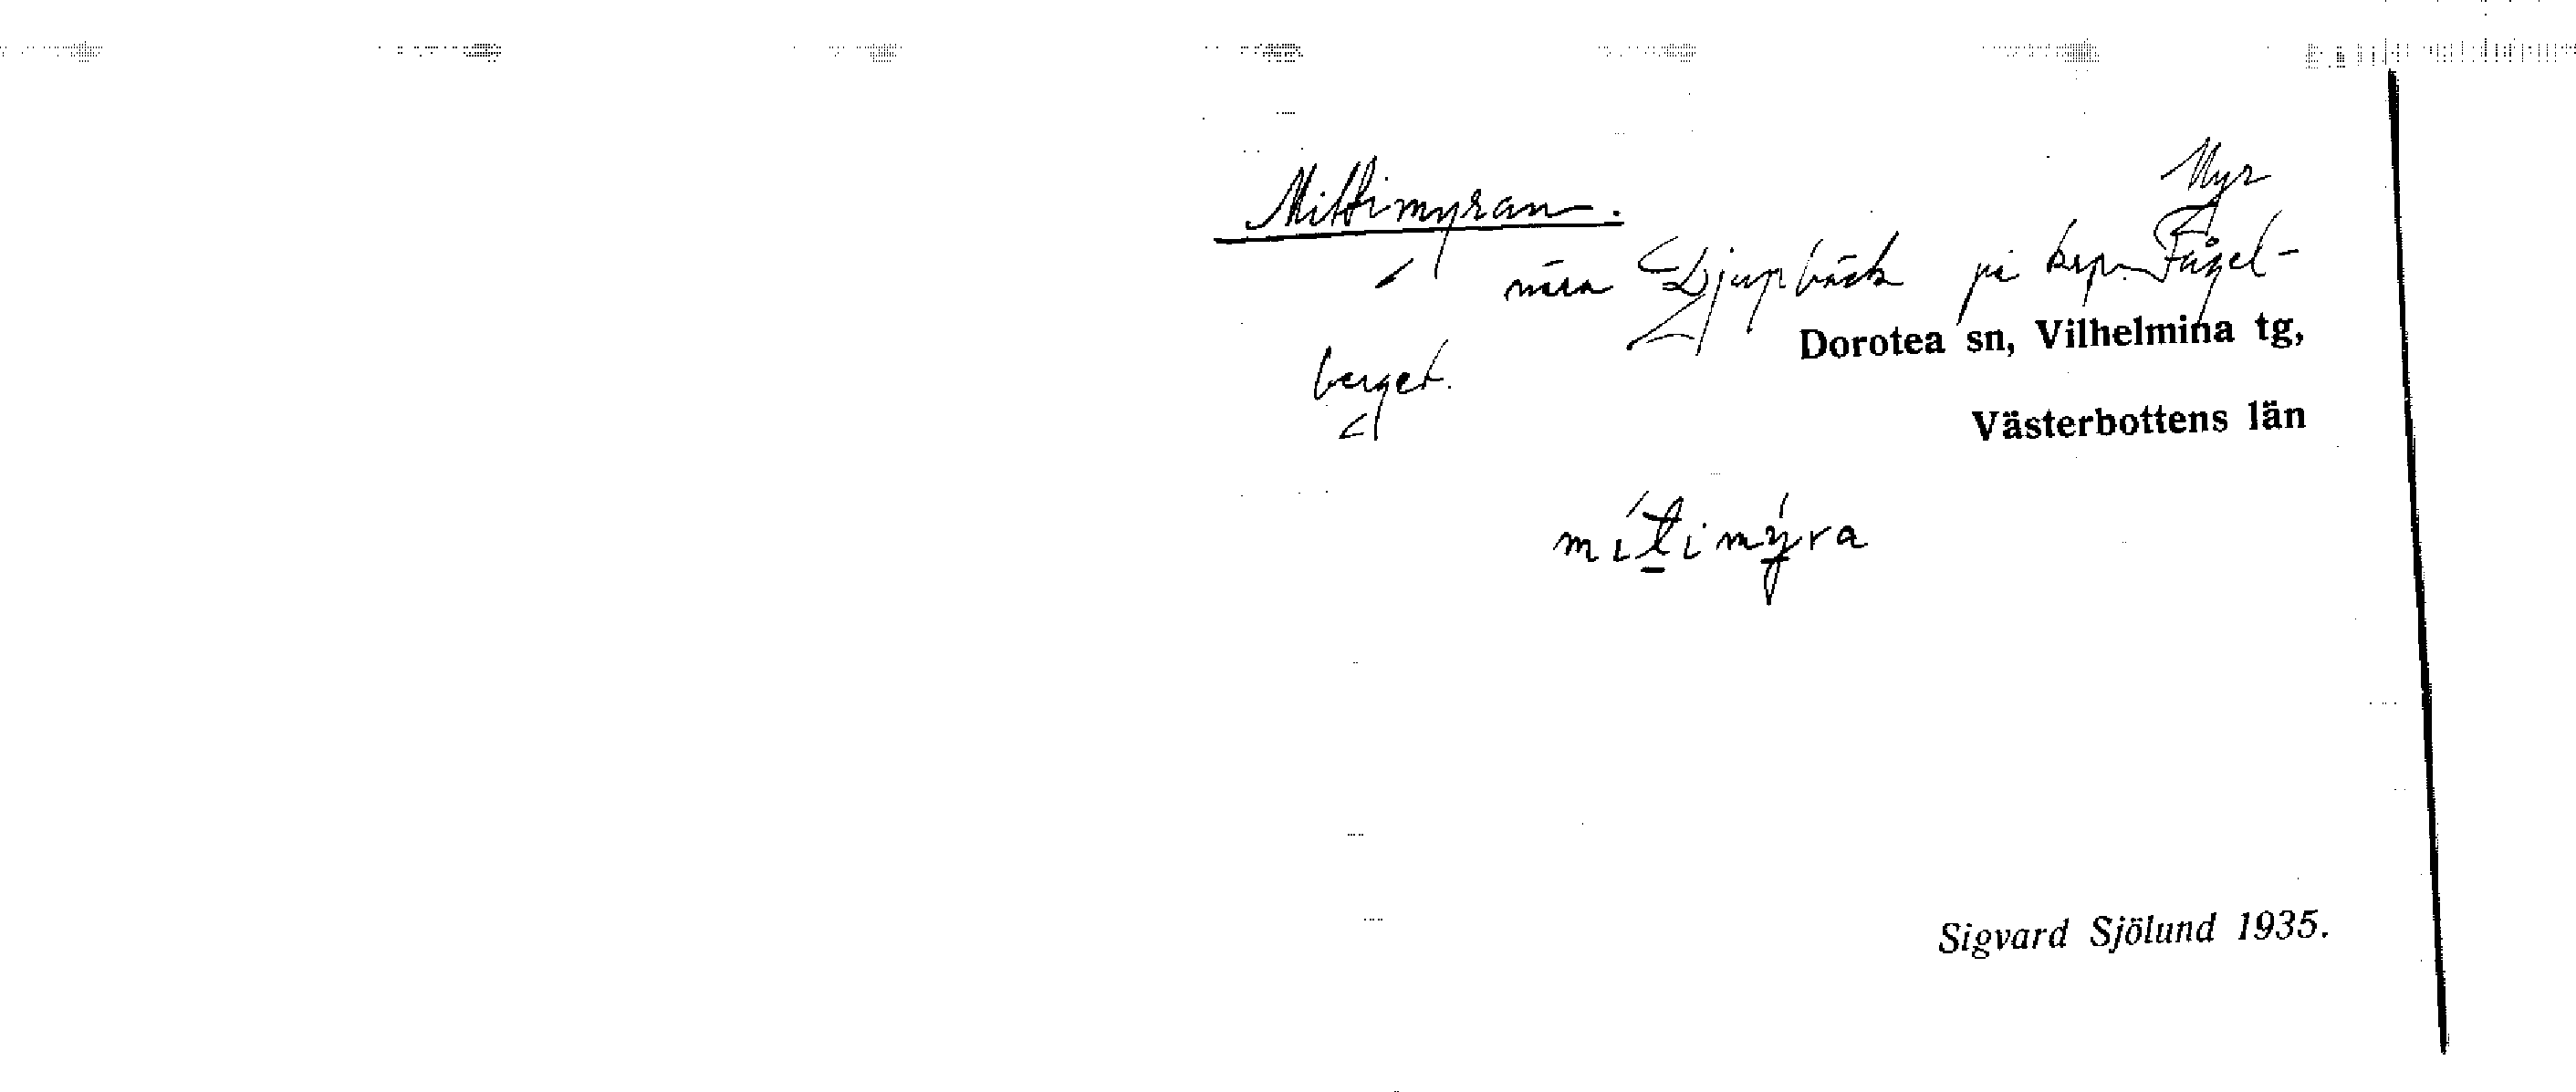 Myr
Mittimyran.
nära Djupbäck på krp. Fågel-
Dorotea sn, Vilhelmina tg,
berget.
Västerbottens län
mítimýra
Sigvard Sjölund 1935.